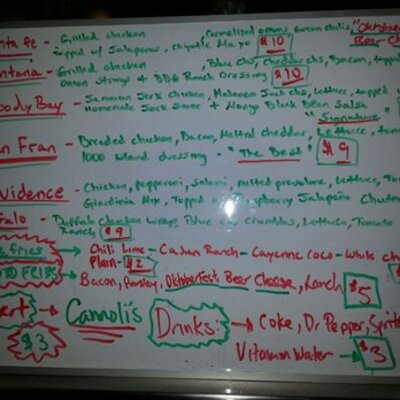 nta fe - Grilled chicken, Caramelized onions, Green chilis, "Oktober
topped w/ Jalapenos, chipotle Mayo $10 Beer Ch
ntana - Grilled chicken, Blue chs, cheddar chs, Bacon, topped
Onion Strings & BBQ Ranch Dressing $10
oody Bay - Jamaican Jerk chicken, Jack chs, Lettuce, topped w/
Homemade Jerk Sauce & Mango Black Bean Salsa
"Signature"
n Fran - Breaded chicken, Bacon, Melted cheddar, Lettuce, tom
1000 Island dressing - "The Best" $9
vidence - Chicken, pepperoni, Salami, melted provolone, Lettuce, Tom
Giardinia Mix, Topped w/ Raspberry Jalapeño Chutn
falo - Buffalo Chicken Wrap, Blue Chs Crumbles, Lettuce, Tomato
Ranch $9
fries Chili Lime - Cajun Ranch - Cayenne Coco - White ch
Plain - $2
FRIES Bacon, Parsley, Oktoberfest Beer Cheese, Ranch $5
ert Cannoli's Drinks: Coke, Dr Pepper, Sprit
$3 Vitamin Water $3